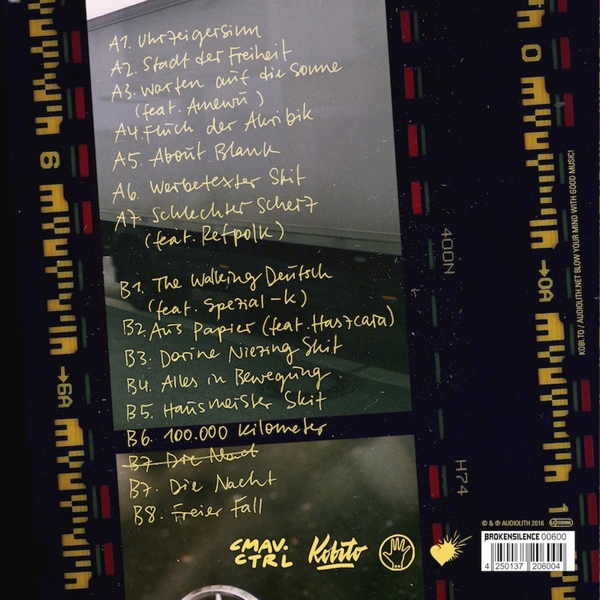 A1. Uhrzeigersinn
A2. Stadt der Freiheit
A3. Warten auf die Sonne
(feat. Amewu)
A4. Fluch der Akribik
A5. About Blank
A6. Werbetexter Skit
A7. Schlechter Scherz
(feat. Refpolk)
B1. The Walking Deutsch
(feat. Spezial-K)
B2. Aus Papier (feat. Haszcara)
B3. Dorine Niezing Skit
B4. Alles in Bewegung
B5. Hausmeister Skit
B6. 100.000 Kilometer
B7 Die Nacht
B7. Die Nacht
B8. Freier Fall
CMAV.
CTRL
Kobito
9
→8A
0
→0A
1
400N
H74
KOBI.TO / AUDIOLITH.NET BLOW YOUR MIND WITH GOOD MUSIC!
© & ℗ AUDIOLITH 2016
BROKENSILENCE 00600
4 250137 206004